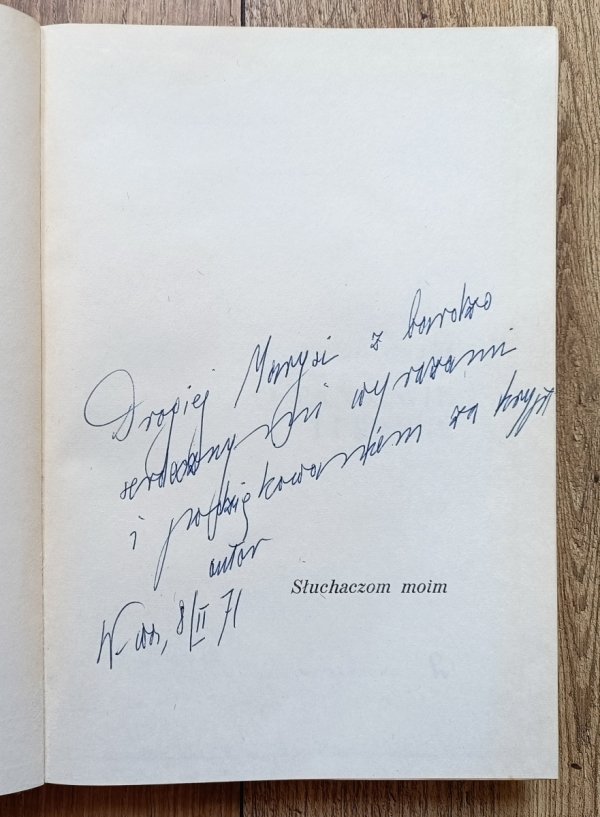 Drogiej Marysi z bardzo
serdecznymi wyrazami
i podziękowaniem za
autor
Słuchaczom moim
W-wa, 8/II 71